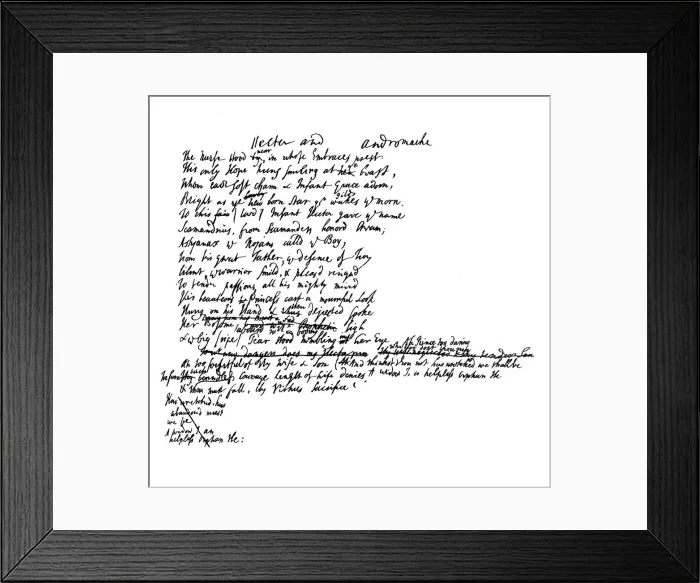 Hector and Andromache
The Nurse stood near, in whose Embraces prest
His only Hope hung smiling at her breast,
Whom each soft charm & Infant Grace adorn,
Bright as ye new born Star yt gilds ye morn.
To this fair Infant Hector gave ye name
Scamandrius, from Scamanders honord Stream;
Astyanax ye Trojans calld ye Boy,
from his great Father, ye defence of Troy
Silent ye warrior smild, & pleasd resignd
To tender passions all his mighty mind
His beauteous Princess cast a mournful look
Hung on his Hand & then dejected spoke
Her Bosome labord with a sigh
& ye big Tear stood trembling in her Eye
Too daring Prince
Ah too forgetful of thy wife & son
And thou not how wretched we shall be
courage length of Life denies A widow I, a helpless orphan He
& thou must fall, thy Virtues Sacrifice
How wretched
abandond must
we be
A widow I an
helpless orphan He: